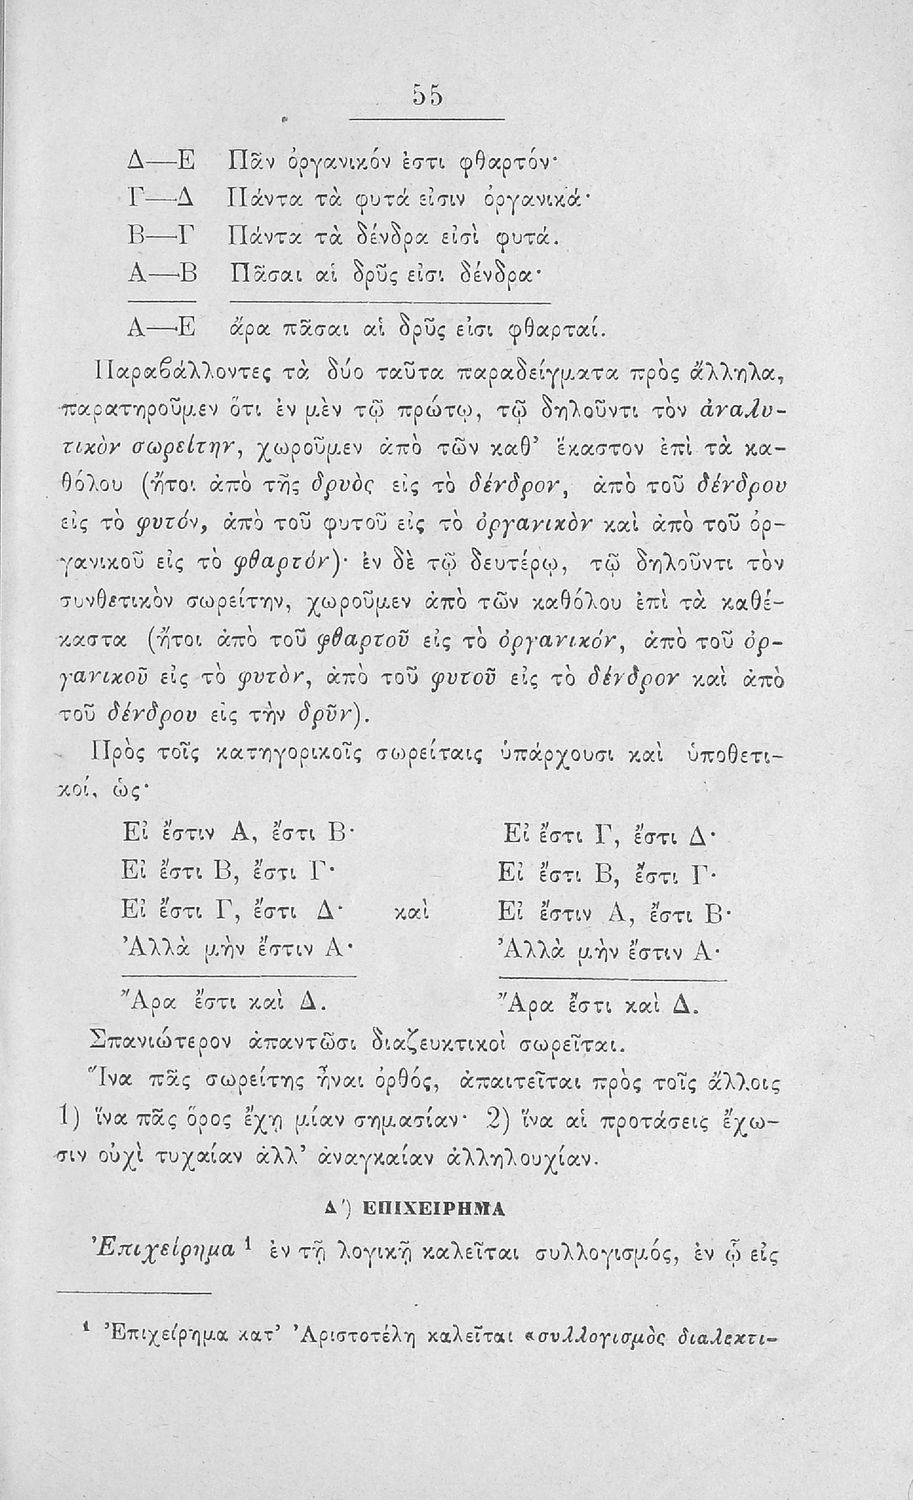 55
Δ—Ε Πᾶν ὀργανικόν ἐστι φθαρτόν·
Γ—Δ Πάντα τὰ φυτά εἰσιν ὀργανικά·
Β—Γ Πάντα τὰ δένδρα εἰσὶ φυτά.
Α—Β Πᾶσαι αἱ δρῦς εἰσι δένδρα·
Α—Ε ἄρα πᾶσαι αἱ δρῦς εἰσι φθαρταί.
Παραβάλλοντες τὰ δύο ταῦτα παραδείγματα πρὸς ἄλληλα,
παρατηροῦμεν ὅτι ἐν μὲν τῷ πρώτῳ, τῷ δηλοῦντι τὸν ἀναλυ-
τικὸν σωρείτην, χωροῦμεν ἀπὸ τῶν καθ' ἕκαστον ἐπὶ τὰ κα-
θόλου (ἤτοι ἀπὸ τῆς δρυὸς εἰς τὸ δένδρον, ἀπὸ τοῦ δένδρου
εἰς τὸ φυτόν, ἀπὸ τοῦ φυτοῦ εἰς τὸ ὀργανικὸν καὶ ἀπὸ τοῦ ὀρ-
γανικοῦ εἰς τὸ φθαρτόν)· ἐν δὲ τῷ δευτέρῳ, τῷ δηλοῦντι τὸν
συνθετικὸν σωρείτην, χωροῦμεν ἀπὸ τῶν καθόλου ἐπὶ τὰ καθέ-
καστα (ἤτοι ἀπὸ τοῦ φθαρτοῦ εἰς τὸ ὀργανικόν, ἀπὸ τοῦ ὀρ-
γανικοῦ εἰς τὸ φυτὸν, ἀπὸ τοῦ φυτοῦ εἰς τὸ δένδρον καὶ ἀπὸ
τοῦ δένδρου εἰς τὴν δρῦν).
Πρὸς τοῖς κατηγορικοῖς σωρείταις ὑπάρχουσι καὶ ὑποθετι-
κοί, ὡς·
Εἰ ἔστιν Α, ἔστι Β· Εἰ ἔστι Γ, ἔστι Δ·
Εἰ ἔστι Β, ἔστι Γ· Εἰ ἔστι Β, ἔστι Γ·
Εἰ ἔστι Γ, ἔστι Δ· καὶ Εἰ ἔστιν Α, ἔστι Β·
Ἀλλὰ μὴν ἔστιν Α· Ἀλλὰ μὴν ἔστιν Α·
Ἄρα ἔστι καὶ Δ. Ἄρα ἔστι καὶ Δ.
Σπανιώτερον ἀπαντῶσι διαζευκτικοὶ σωρεῖται.
Ἵνα πᾶς σωρείτης ᾖναι ὀρθός, ἀπαιτεῖται πρὸς τοῖς ἄλλοις
1) ἵνα πᾶς ὅρος ἔχῃ μίαν σημασίαν· 2) ἵνα αἱ προτάσεις ἔχω-
σιν οὐχὶ τυχαίαν ἀλλ' ἀναγκαίαν ἀλληλουχίαν.
Δ') ΕΠΙΧΕΙΡΗΜΑ
Ἐπιχείρημα ¹ ἐν τῇ λογικῇ καλεῖται συλλογισμός, ἐν ᾧ εἰς
¹ Ἐπιχείρημα κατ' Ἀριστοτέλη καλεῖται «συλλογισμὸς διαλεκτι-